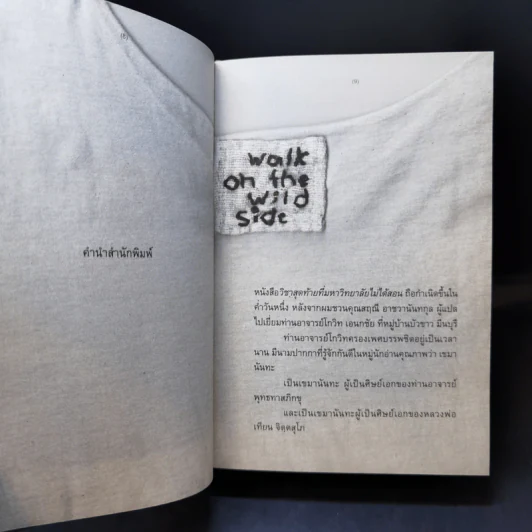 (6)
คำนำสำนักพิมพ์
walk
on the
wild
side
หนังสือวิชาสุดท้ายที่มหาวิทยาลัยไม่ได้สอน ถือกำเนิดขึ้นใน
ค่ำวันหนึ่ง หลังจากผมชวนคุณสฤณี อาชวานันทกุล ผู้แปล
ไปเยี่ยมท่านอาจารย์โกวิท เอนกชัย ที่หมู่บ้านบัวขาว มีนบุรี
ท่านอาจารย์โกวิทครองเพศบรรพชิตอยู่เป็นเวลา
นาน มีนามปากกาที่รู้จักกันดีในหมู่นักอ่านคุณภาพว่า เขมา
นันทะ
เป็นเขมานันทะ ผู้เป็นศิษย์เอกของท่านอาจารย์
พุทธทาสภิกขุ
และเป็นเขมานันทะผู้เป็นศิษย์เอกของหลวงพ่อ
เทียน จิตฺตสุโภ